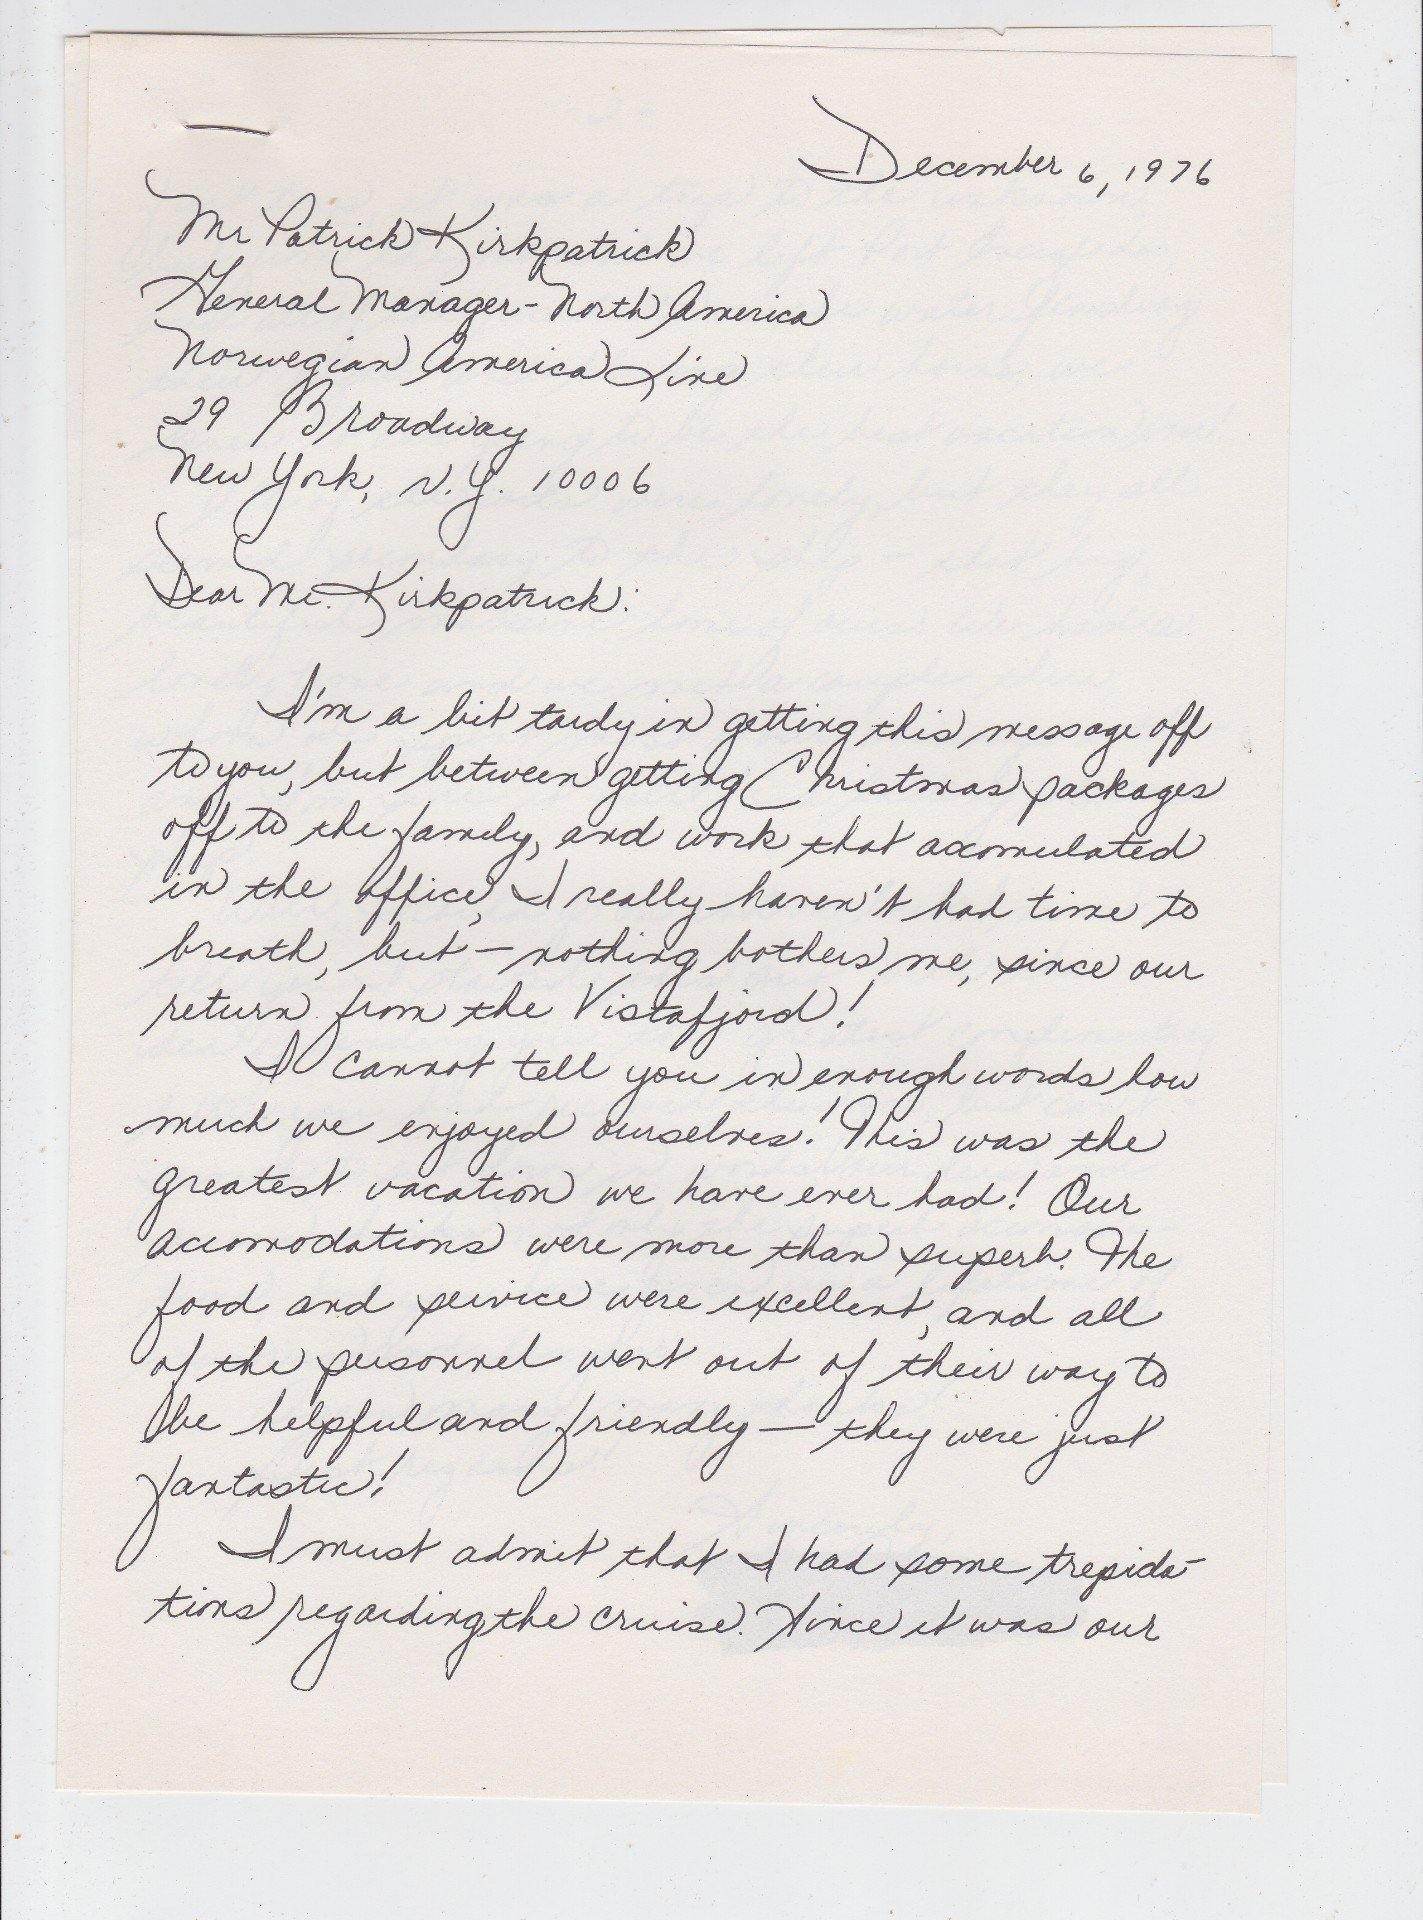 December 6, 1976
Mr Patrick Kirkpatrick
General Manager - North America
Norwegian America Line
29 Broadway
New York, N.Y. 10006
Dear Mr. Kirkpatrick:
I'm a bit tardy in getting this message off
to you, but between getting Christmas packages
off to the family, and work that accomulated
in the office, I really haven't had time to
breath, but — nothing bothers me, since our
return from the Vistafjord!
I cannot tell you in enough words how
much we enjoyed ourselves! This was the
greatest vacation we have ever had! Our
accomodations were more than superb. The
food and service were excellent, and all
of the personnel went out of their way to
be helpful and friendly — they were just
fantastic!
I must admit that I had some trepida-
tions regarding the cruise. Since it was our